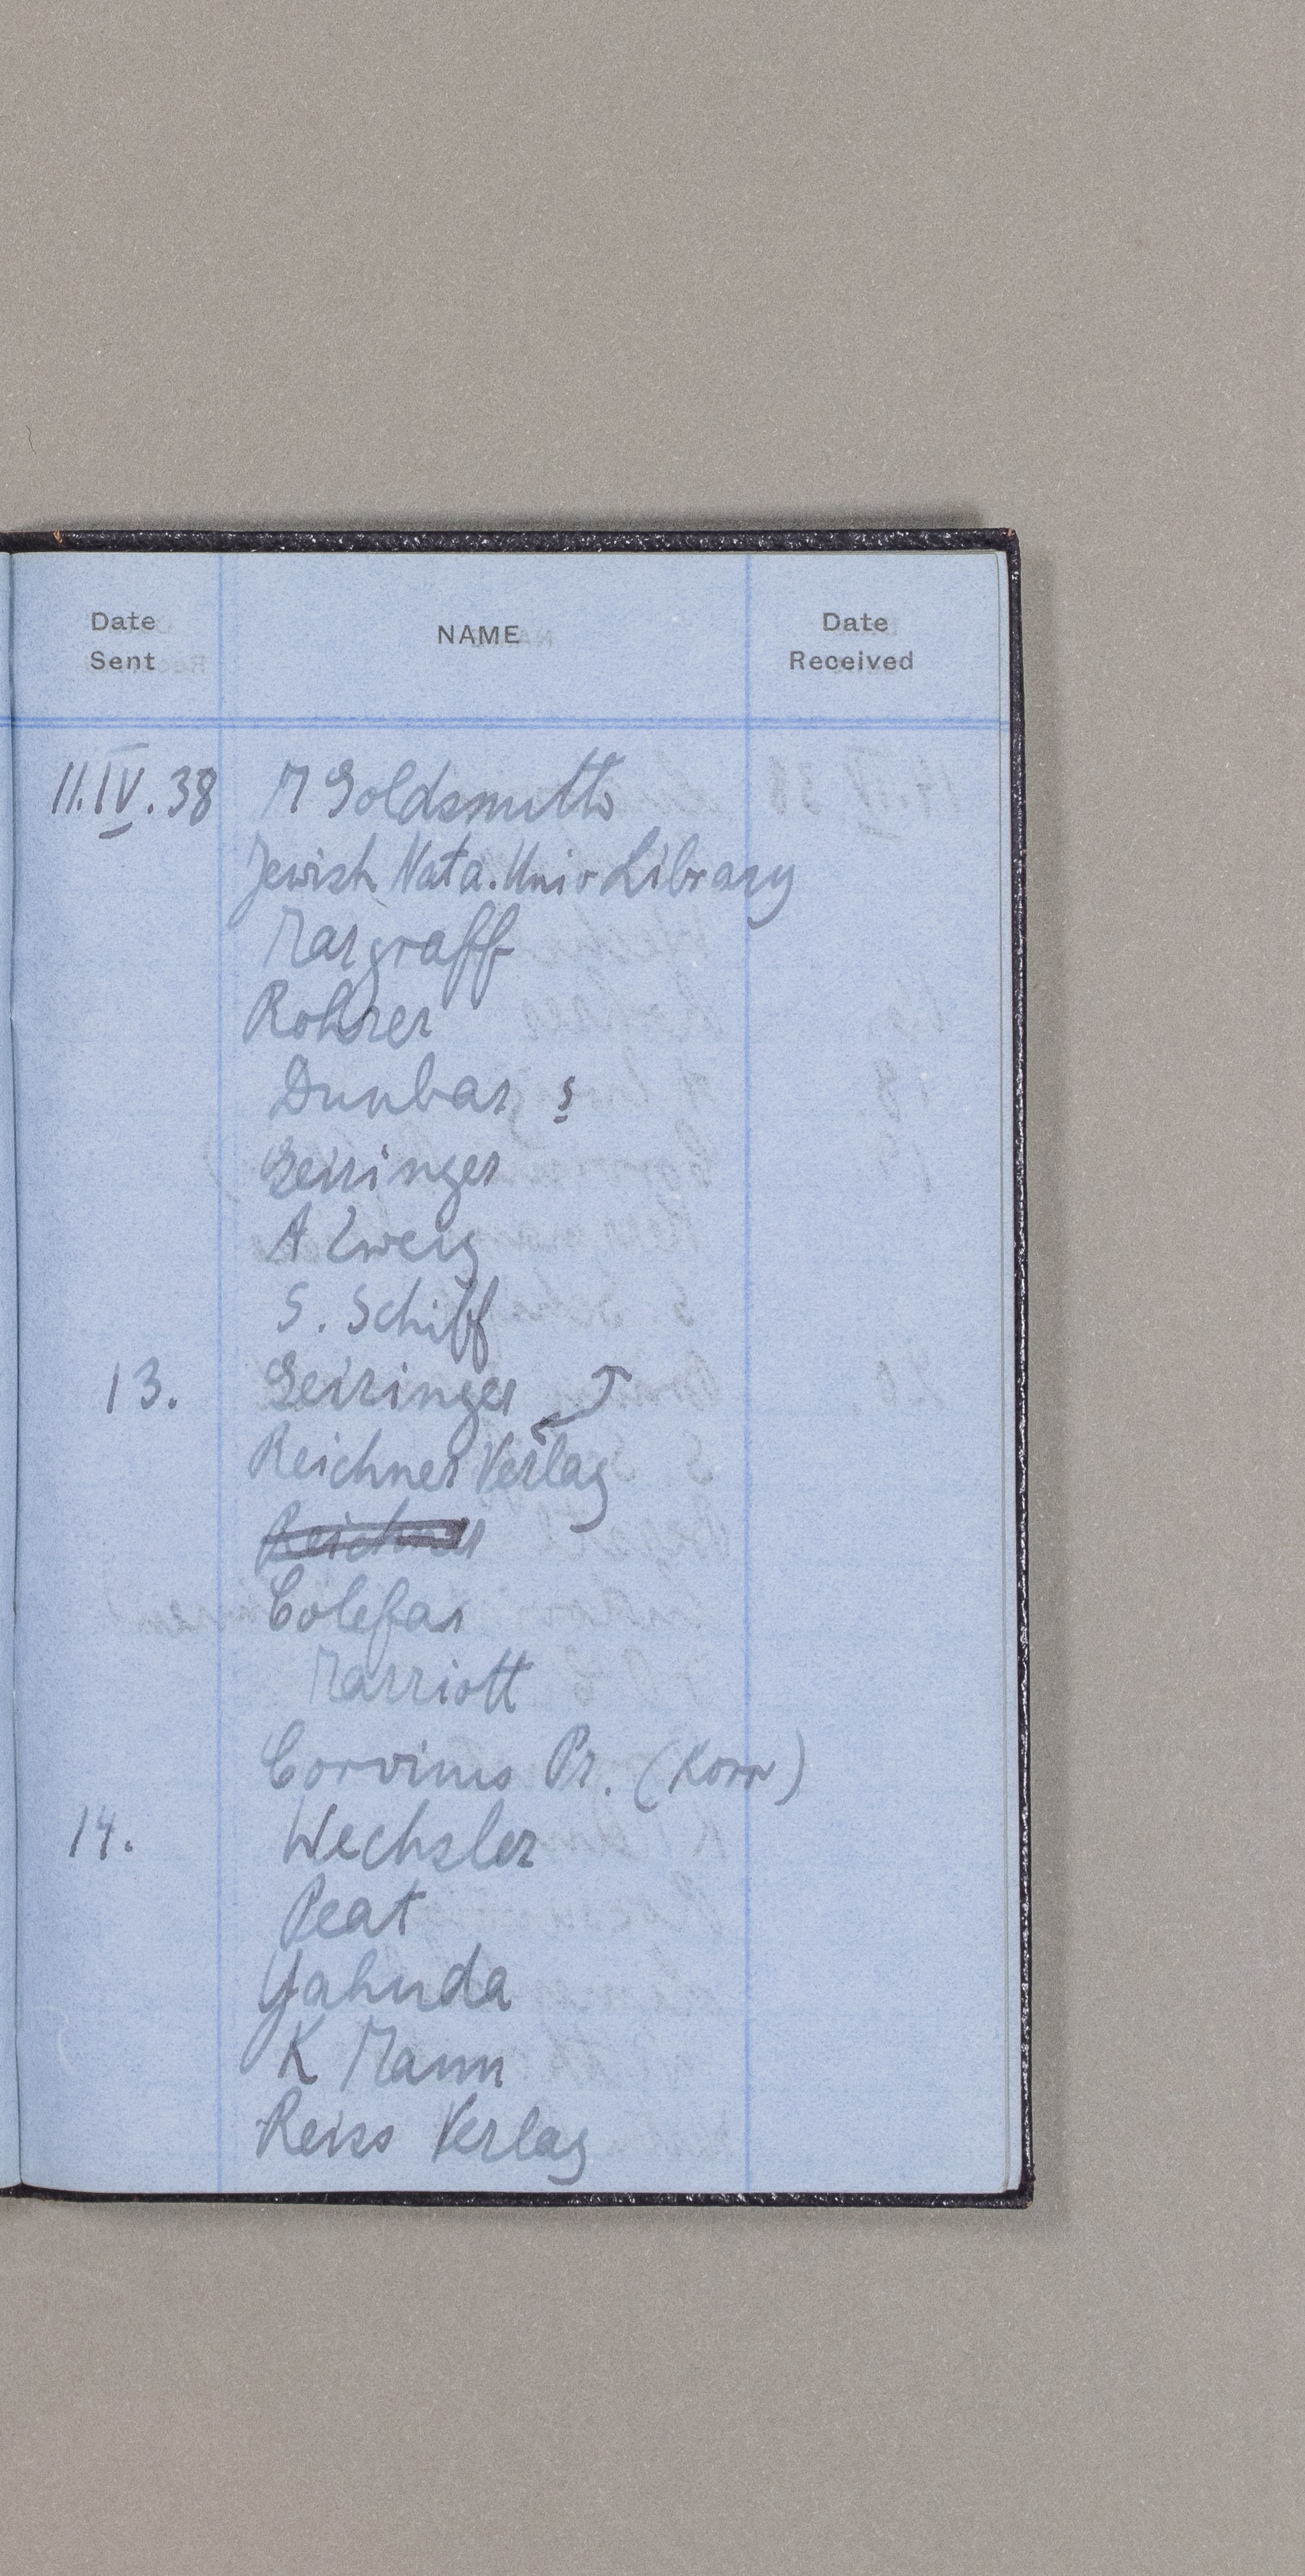 Date Sent NAME Date Received
11.IV.38 M Goldsmith
Jewish Nat a. Univ Library
Margraff
Rohrer
Dunbar
Geiringer
A Zweig
S. Schiff
13. Geiringer
Reichner Verlag
Reichner
Colefax
Marriott
Corvinus Pr. (Korr)
14. Wechsler
Peat
Yahuda
K Mann
Reiss Verlag